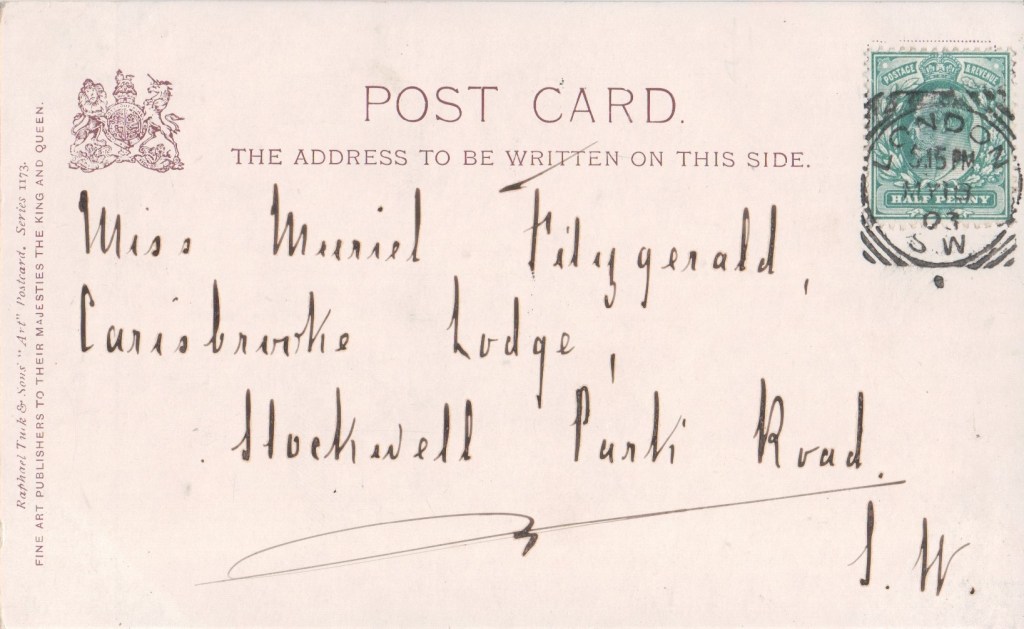 POST CARD.
THE ADDRESS TO BE WRITTEN ON THIS SIDE.
POSTAGE & REVENUE
HALF PENNY
LONDON
5.15 PM
MY 07
03
S.W
Miss Muriel Fitzgerald,
Carisbrooke Lodge,
Stockwell Park Road.
S. W.
Raphael Tuck & Sons' "Art" Postcard. Series 1173.
FINE ART PUBLISHERS TO THEIR MAJESTIES THE KING AND QUEEN.